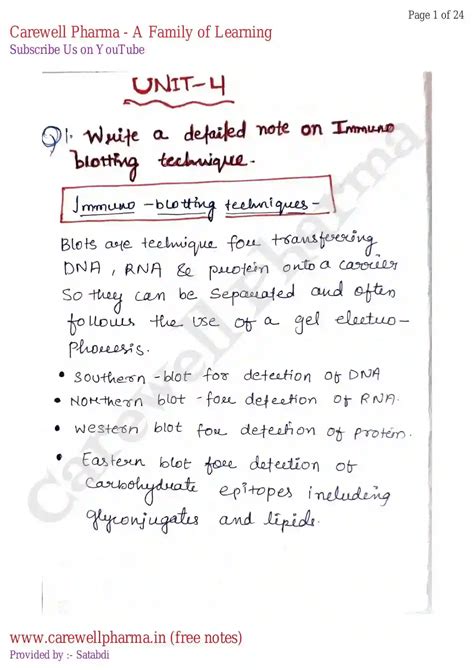 Page 1 of 24
Carewell Pharma - A Family of Learning
Subscribe Us on YouTube
UNIT-4
Q1. Write a detailed note on Immuno
blotting technique.
Immuno - blotting techniques -
Blots are technique for transferring
DNA, RNA & protein onto a carrier
So they can be Separated and often
follows the use of a gel electro-
Phoresis.
• Southern - blot for detection of DNA
• Northern blot - for detection of RNA.
• Western blot for detection of protein.
• Eastern blot for detection of
Carbohydrate epitopes including
glyconjugates and lipids.
Carewell Pharma
www.carewellpharma.in (free notes)
Provided by :- Satabdi